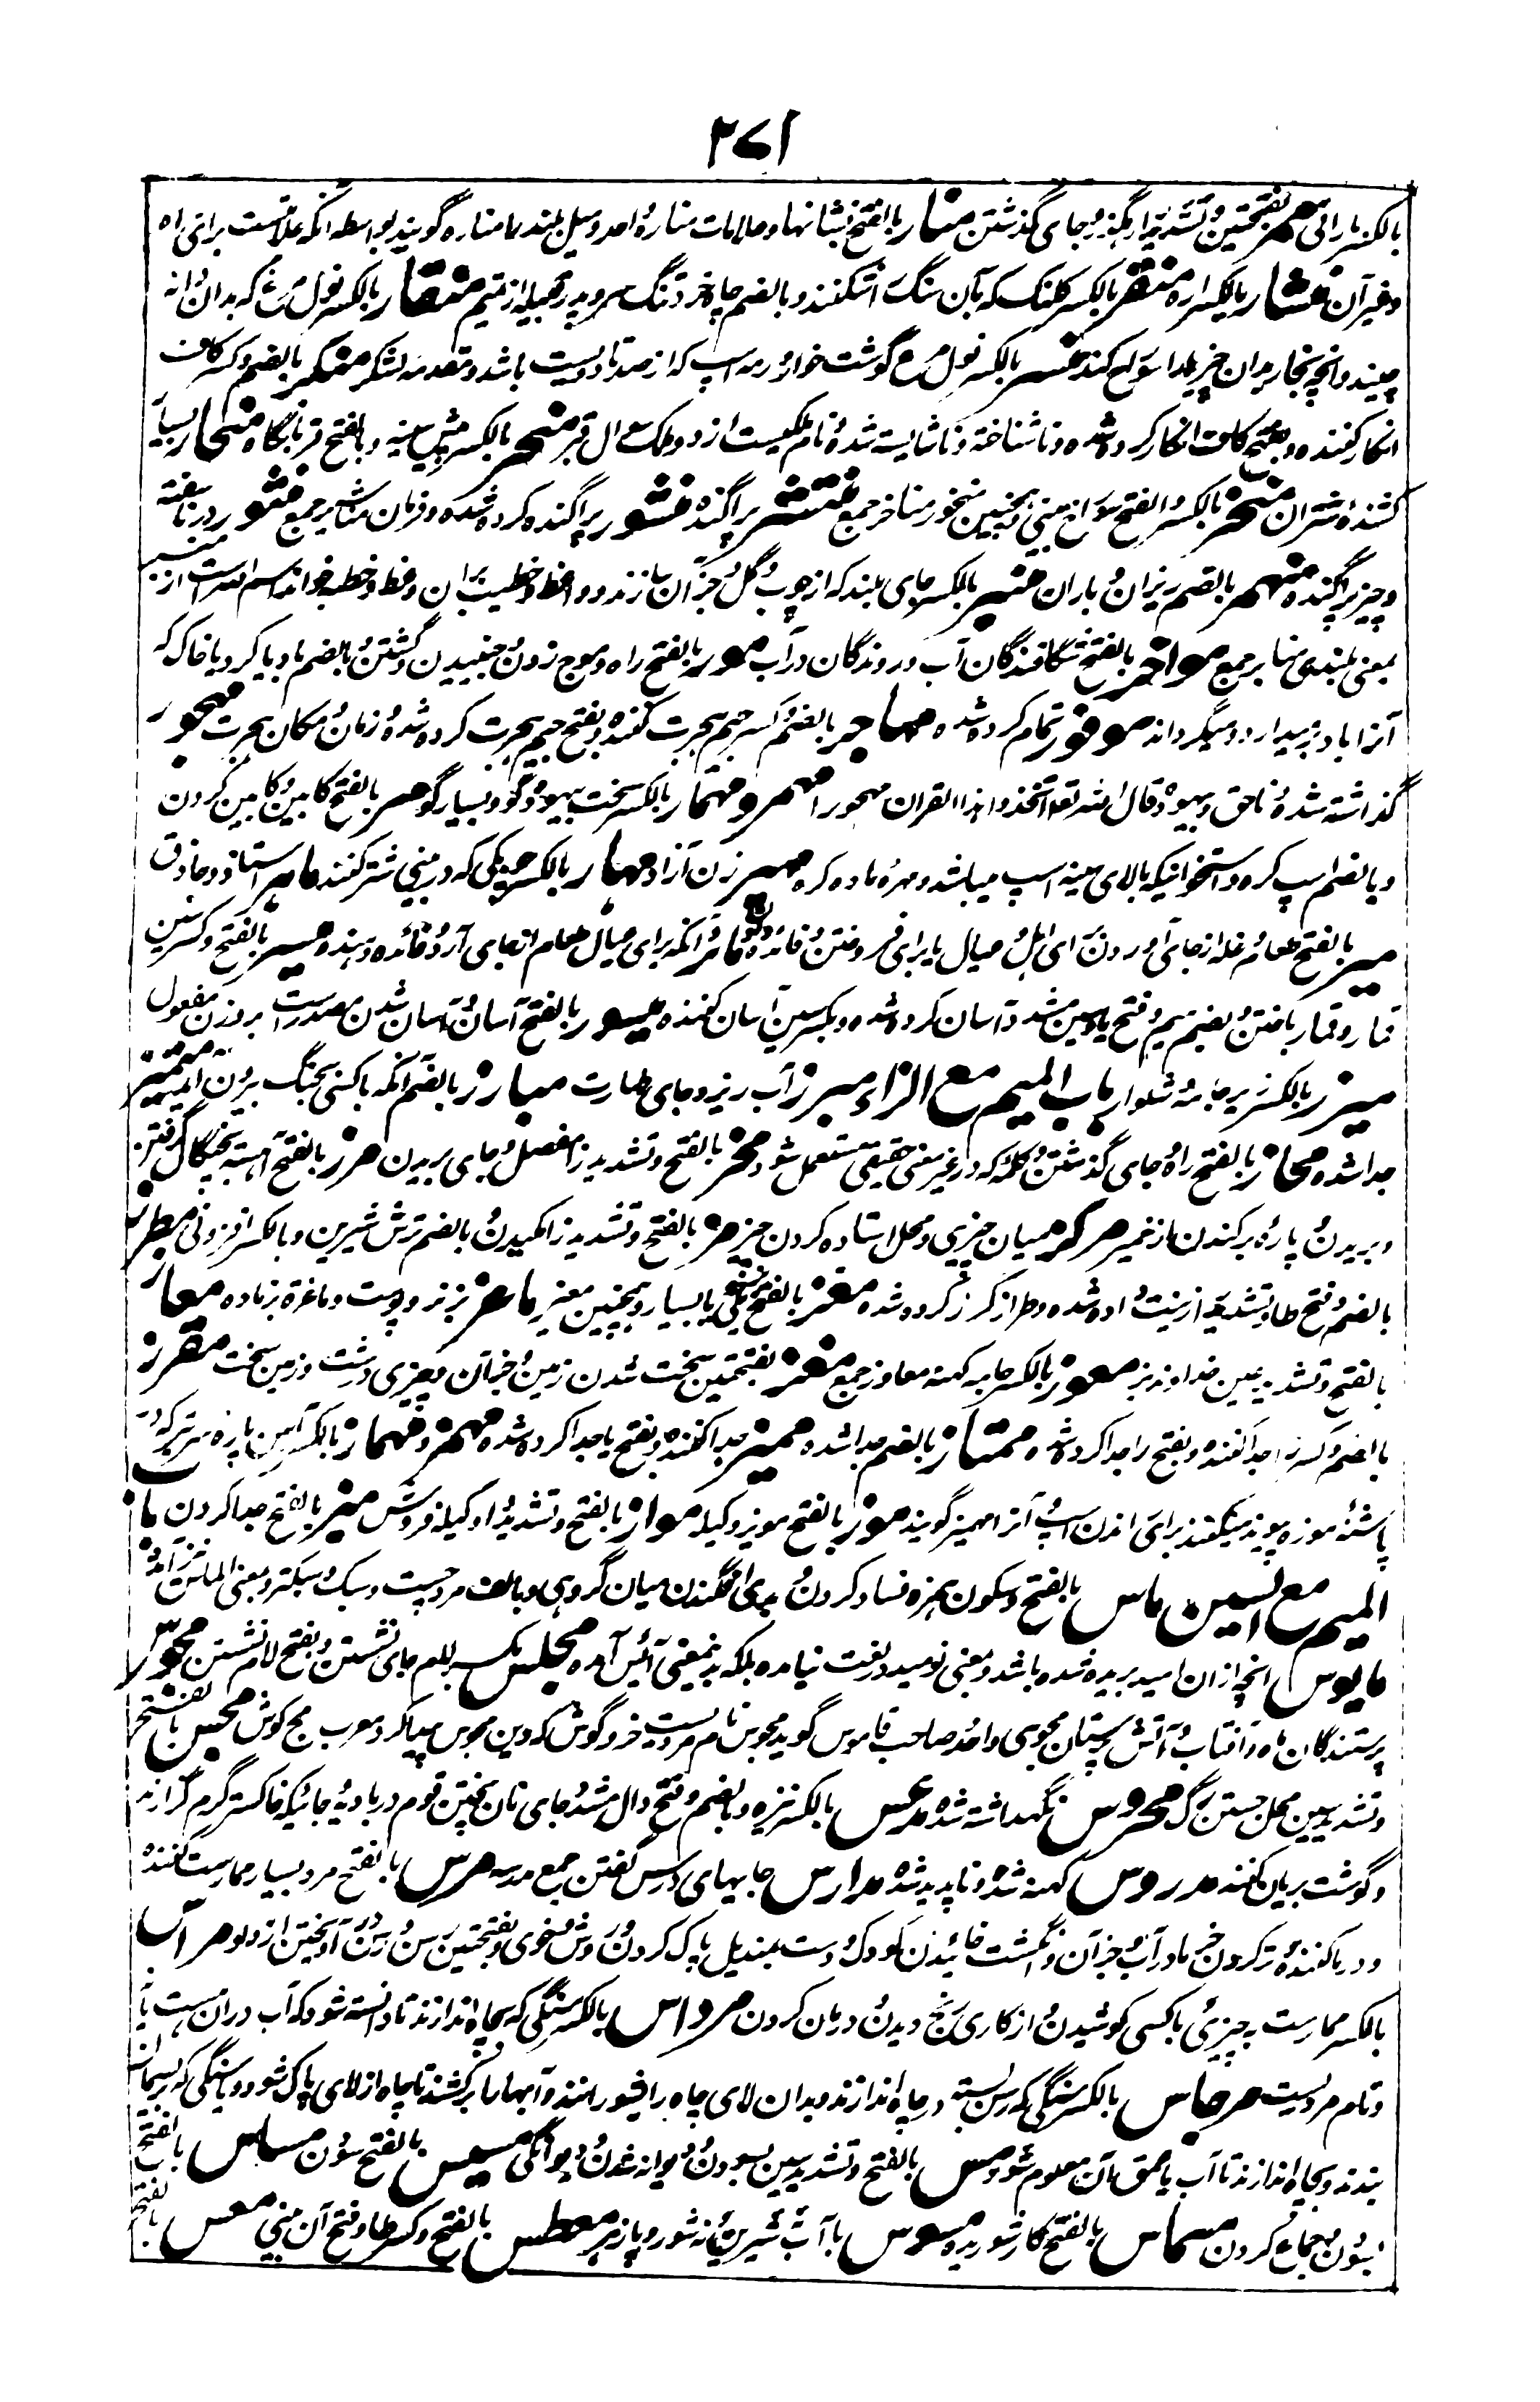 ٣٧١
بالکسر بارانی ممر بفتحتین و تشدید را رهگذر و جای گذشتن منار بالفتح نشانها و علامات مناره واحد و میل بلند را مناره گویند بواسطه آنکه علامتست برای راه
و غیر آن منشار بالکسر اره منقر بالکسر کلنگ که بآن سنگ شکنند و بالضم چاه خرد تنگ سر و پدر قبیله از تمیم منقار بالکسر نول مرغ که بدان دانه
چیند و آنچه نجار بدان چیز را سوراخ کند منسر بالکسر نول مرغ گوشت خوار و رمه اسپ که از صد تا دویست باشد و مقدمه لشکر منکر بالضم و کسر کاف
انکار کننده و بفتح کاف انکار کرده شده و ناشناخته و ناشایسته شده و نام ملکیست از دو ملک سوال قبر منحر بالکسر پیش سینه و بالفتح قربانگاه منحار بسیار
کشنده شتران منخر بالکسر و الفتح سوراخ بینی و همچنین منخور مناخر جمع منتشر پراگنده منشور پراگنده کرده شده و فرمان مناشیر جمع منثور در ناسفته
و چیز پراگنده منهمر بالضم ریزان و باران منبر بالکسر جای بلند که از چوب و گل و جز آن سازند و واعظ و خطیب بران وعظ و خطبه خواند اسم آلت است از نبر
بمعنی بلندی منابر جمع مواخر بالفتح شگافندگان آب و روندگان در آب مور بالفتح راه و موج زدن و جنبیدن و گشتن و بالضم باد با گرد یا خاک که
آنرا باد بر میدارد و میگرداند موفور تمام کرده شده مهاجر بالضم و کسر جیم هجرت کننده و بفتح جیم هجرت کرده شده و زمان و مکان هجرت مهجور
گذاشته شده و ناحق و بیهوده قال الله تعالی اتخذوا هذا القران مهجورا مهمر و مهمار بالکسر سخت بیهوده گو و بسیار گو مهر بالفتح کابین و کابین کردن
و بالضم اسپ کره و استخوانیکه بالای سینه اسپ میباشد و مهره ماده کره مهیر زن آزاد مهار بالکسر چوبکی که در بینی شتر کنند ماهر استاد و حاذق
میر بالفتح طعام و غله از جای آوردن برای اهل و عیال یا برای فروختن و فائده مائر آنکه برای عیال طعام از جای آرد و فائده دهنده میسر بالفتح و کسر سین
قمار و قمار باختن و بضم میم و فتح یا و سین مشدد آسان کرده شده و بکسر سین آسان کننده میسور بالفتح آسان و آسان شدن مصدر است بر وزن مفعول
میزر بالکسر زیر جامه و شلوار باب المیم مع الزاء مبرز آب ریز و جای طهارت مبارز بالضم آنکه با کسی بجنگ بیرون آید متمیز
جدا شده مجاز بالفتح راه و جای گذشتن و کلمه که در غیر معنی حقیقی مستعمل شود محز بالفتح و تشدید زا مفصل و جای بریدن مرز بالفتح آهسته بچنگال گرفتن
و بریدن و پاره برکندن از خمیر مرکز میان چیزی و محل استاده کردن چیز مز بالفتح و تشدید زا مکیدن و بالضم ترش شیرین و بالکسر افزونی مطرز
بالضم و فتح طا و تشدید را زینت داده شده و طراز کرده شده معز بالفتح بز بسیار و همچنین معیز ماعز بز نر و پوست و ماعزة بز ماده معاز
بالفتح و تشدید عین خداوند بز معوز بالکسر جامه کهنه معاوز جمع معز بفتحتین سخت شدن زمین و جز آن و چیزی درشت و زمین سخت مفرز
بالضم و کسر را جدا کننده و بفتح را جدا کرده شده ممتاز بالضم جدا شده ممیز جدا کننده و بفتح یا جدا کرده شده مهمز و مهماز بالکسر آهن پاره سر تیز که در
پاشنه موزه پیوند میکنند برای راندن اسپ و آنرا مهمیز گویند موز بالفتح مویز و کیله مواز بالفتح و تشدید واو کیله فروش میز بالفتح جدا کردن باب
المیم مع السین ماس بالفتح و سکون همزه فساد کردن و بدی افگندن میان گروهی و بالف مرد چست و سبک و سبکسر و بمعنی الماس آمده
مایوس آنچه از ان امید بریده شده باشد و بمعنی نومید در لغت نیامده بلکه بدینمعنی آئس آمده مجلس بکسر لام جای نشستن و بفتح لام نشستن مجوس
پرستندگان ماه و آفتاب و آتش پرستان مجوسی واحد صاحب قاموس گوید مجوس نام مردیست خرد گوش که دین مجوس پیدا کرد معرب مج کوش محس بالفتح
و تشدید سین محل جستن رگ محروس نگهداشته شده مدعس بالکسر نیزه و بالضم و فتح دال مشدد جای نان پختن قوم در بادیه جائیکه خاکستر گرم گذارند
و گوشت بریان کنند مدروس کهنه شده و ناپدید شده مدارس جایهای درس گفتن جمع مدرسه مرس بالفتح مرد بسیار ممارست کننده
و دریا کننده و تر کردن خرما در آب و جز آن و انگشت خائیدن کودک و دست بمندیل پاک کردن و روش و خوی و بفتحتین رسن و رسن آویختن از دلو مراس
بالکسر ممارست به چیزی یا کسی کوشیدن و از کاری رنج دیدن و درمان کردن مرداس بالکسر سنگی که بچاه اندازند تا دانسته شود که آب دران هست یا نه
و نام مردیست مرجاس بالکسر سنگی که رسن بسته در چاه اندازند و بدان لای چاه را بشورانند و آبها را برکشند تا چاه از لای پاک شود و یا سنگی که بریسمان
بندند و بچاه اندازند تا آب یا عمق آن معلوم شود مس بالفتح و تشدید سین بسودن و دیوانه شدن و دیوانگی مسیس بالفتح سودن مساس بالفتح
بسودن و جماع کردن مسماس بالفتح کار شوریده مسوس با آب شیرین و نه شور و پازهر معطس بالفتح و کسر طا و فتح آن بینی معس بالفتح